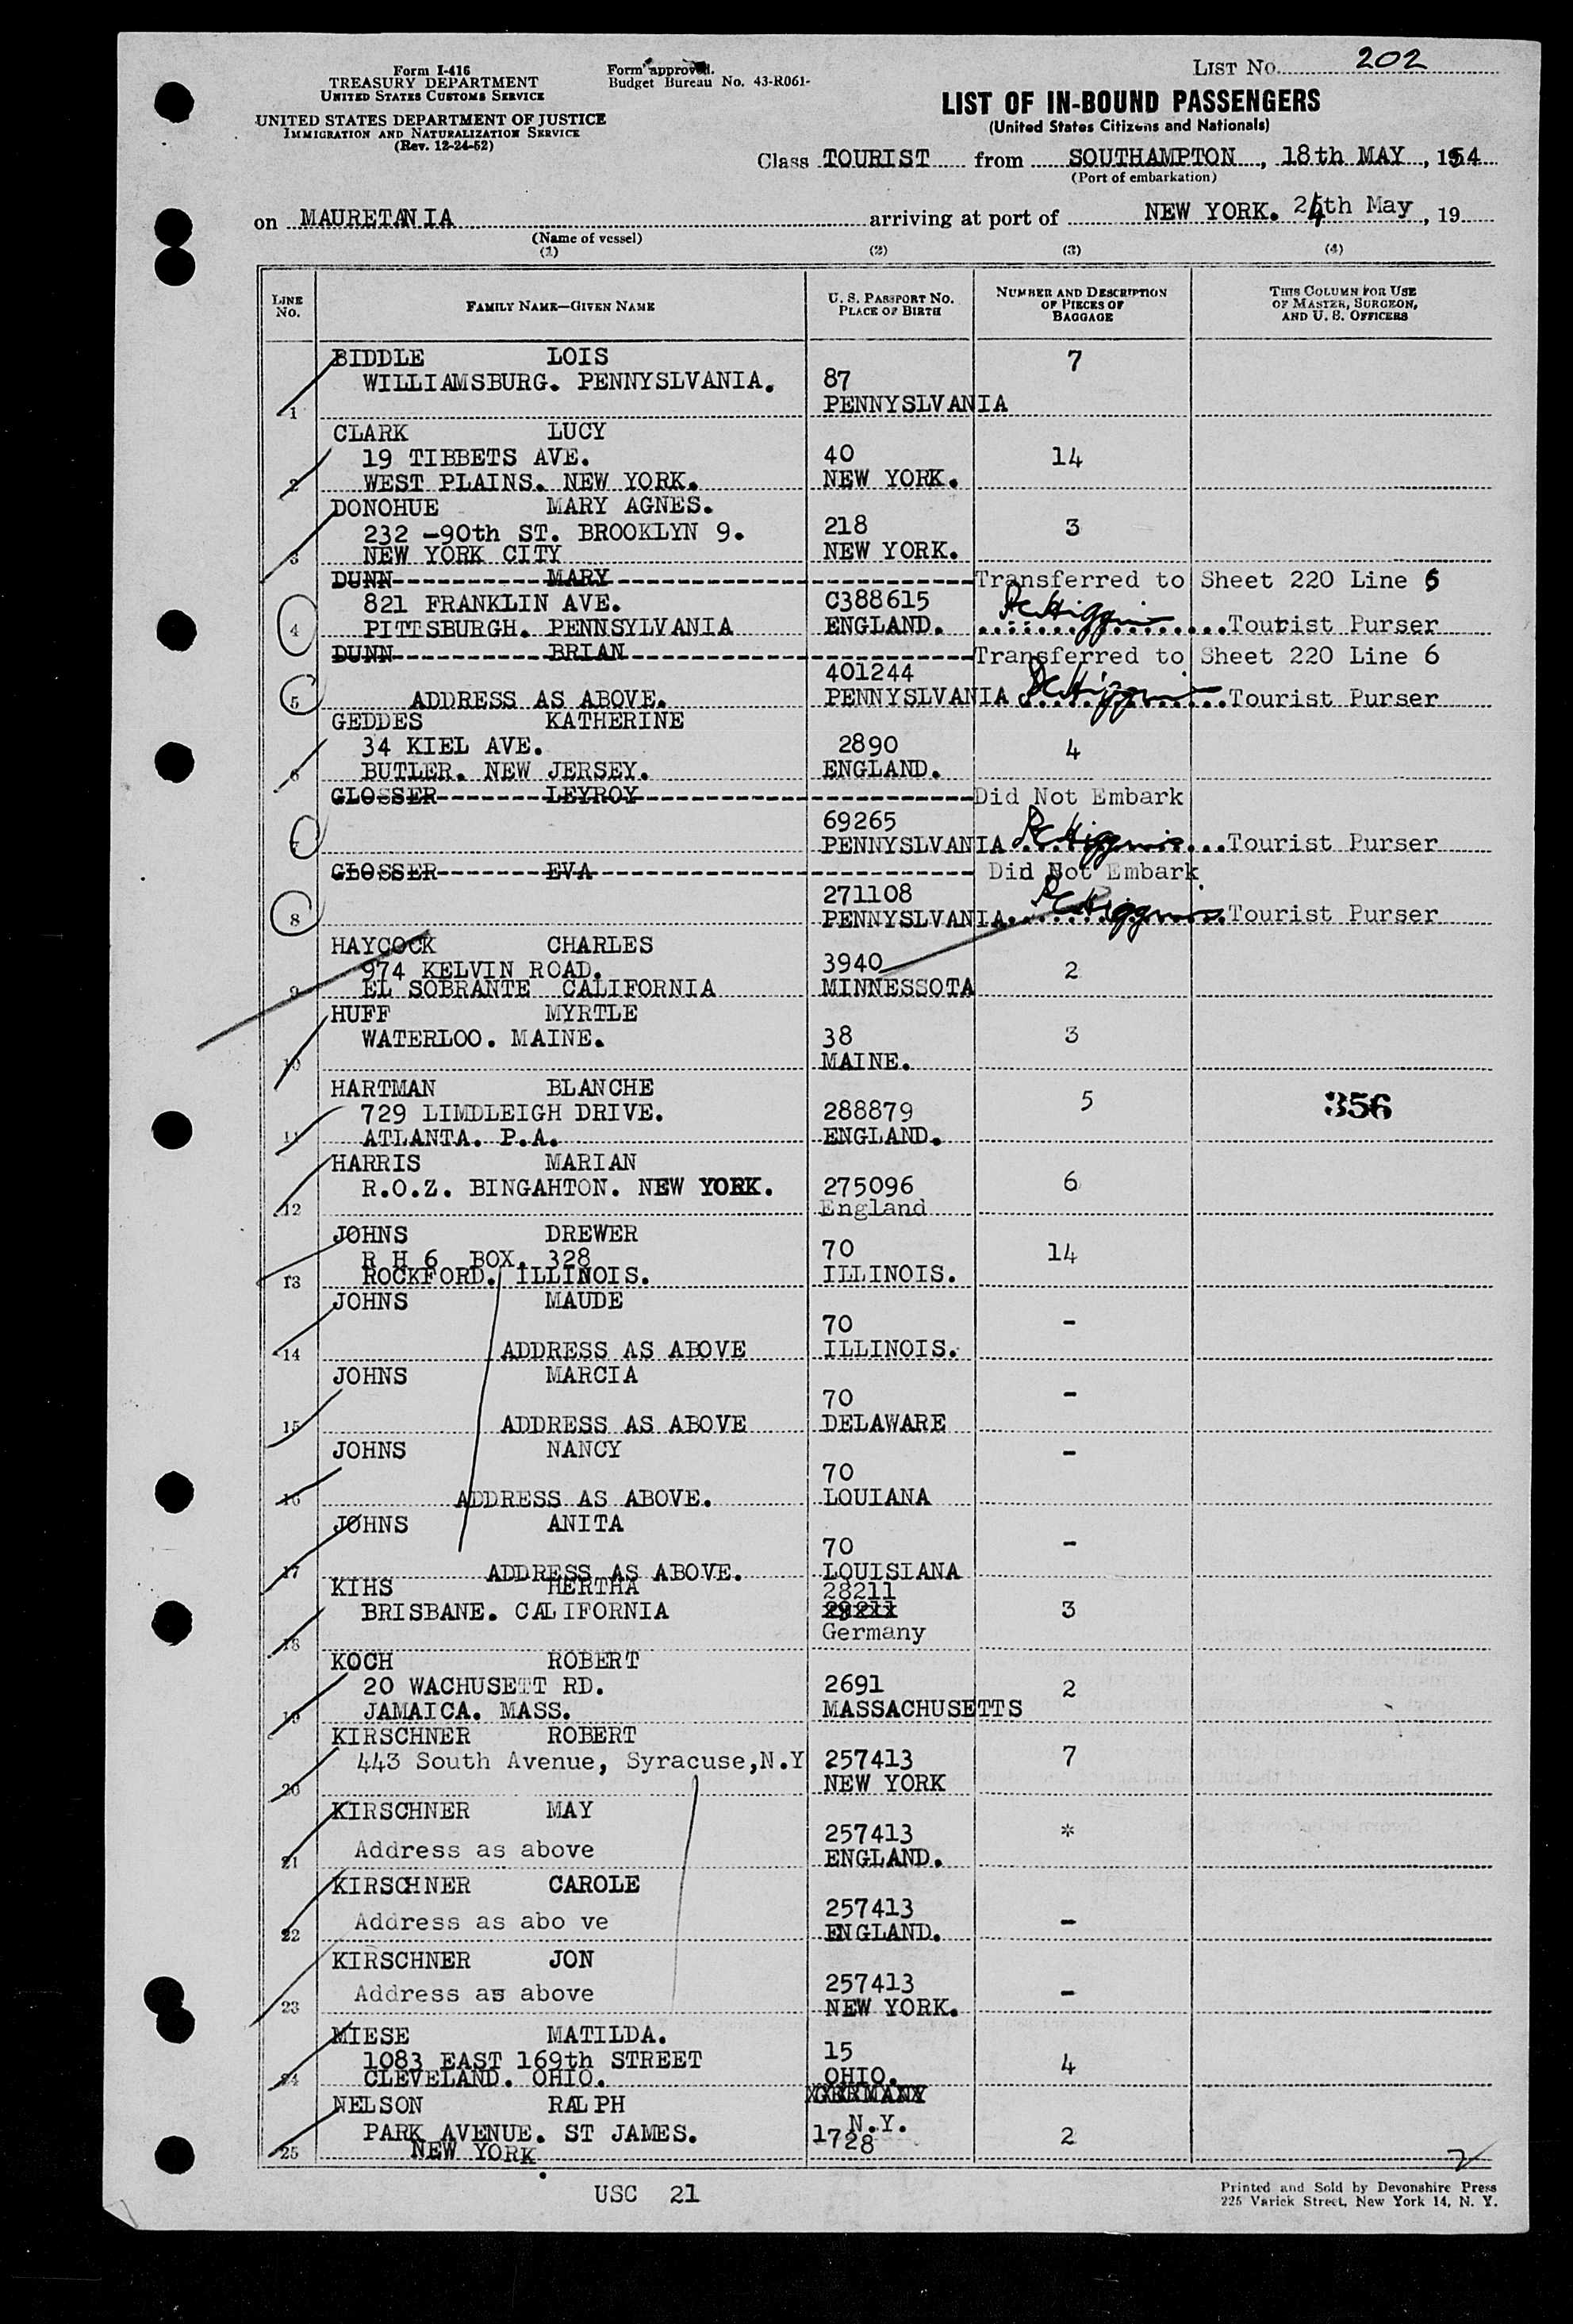 Form I-416
TREASURY DEPARTMENT
UNITED STATES CUSTOMS SERVICE
UNITED STATES DEPARTMENT OF JUSTICE
IMMIGRATION AND NATURALIZATION SERVICE
(Rev. 12-24-52)
Form approved.
Budget Bureau No. 43-R061-
LIST No. 202
LIST OF IN-BOUND PASSENGERS
(United States Citizens and Nationals)
Class TOURIST from SOUTHAMPTON, 18th MAY, 1954
(Port of embarkation)
on MAURETANIA arriving at port of NEW YORK. 24th May, 19
(Name of vessel)
(1) (2) (3) (4)
LINE No. FAMILY NAME—GIVEN NAME U. S. PASSPORT NO. PLACE OF BIRTH NUMBER AND DESCRIPTION OF PIECES OF BAGGAGE THIS COLUMN FOR USE OF MASTER, SURGEON, AND U. S. OFFICERS
BIDDLE LOIS 7
WILLIAMSBURG. PENNYSLVANIA. 87
1 PENNYSLVANIA
CLARK LUCY
19 TIBBETS AVE. 40 14
2 WEST PLAINS. NEW YORK. NEW YORK.
DONOHUE MARY AGNES.
232 -90th ST. BROOKLYN 9. 218 3
3 NEW YORK CITY NEW YORK.
DUNN MARY Transferred to Sheet 220 Line 5
821 FRANKLIN AVE. C388615
4 PITTSBURGH. PENNSYLVANIA ENGLAND. Tourist Purser
DUNN BRIAN Transferred to Sheet 220 Line 6
401244
5 ADDRESS AS ABOVE. PENNYSLVANIA Tourist Purser
GEDDES KATHERINE
34 KIEL AVE. 2890 4
6 BUTLER. NEW JERSEY. ENGLAND.
GLOSSER LEYROY Did Not Embark
69265
7 PENNYSLVANIA Tourist Purser
GLOSSER EVA Did Not Embark
271108
8 PENNYSLVANIA Tourist Purser
HAYCOCK CHARLES
974 KELVIN ROAD. 3940 2
9 EL SOBRANTE CALIFORNIA MINNESSOTA
HUFF MYRTLE
WATERLOO. MAINE. 38 3
10 MAINE.
HARTMAN BLANCHE
729 LIMDLEIGH DRIVE. 288879 5 356
11 ATLANTA. P.A. ENGLAND.
HARRIS MARIAN
R.O.Z. BINGAHTON. NEW YORK. 275096 6
12 England
JOHNS DREWER
R H 6 BOX. 328 70 14
13 ROCKFORD. ILLINOIS. ILLINOIS.
JOHNS MAUDE
70 -
14 ADDRESS AS ABOVE ILLINOIS.
JOHNS MARCIA
70 -
15 ADDRESS AS ABOVE DELAWARE
JOHNS NANCY
70 -
16 ADDRESS AS ABOVE. LOUIANA
JOHNS ANITA
70 -
17 ADDRESS AS ABOVE. LOUISIANA
KIHS HERTHA 28211
BRISBANE. CALIFORNIA 3
18 Germany
KOCH ROBERT
20 WACHUSETT RD. 2691 2
19 JAMAICA. MASS. MASSACHUSETTS
KIRSCHNER ROBERT
443 South Avenue, Syracuse,N.Y 257413 7
20 NEW YORK
KIRSCHNER MAY
Address as above 257413 *
21 ENGLAND.
KIRSCHNER CAROLE
Address as abo ve 257413 -
22 ENGLAND.
KIRSCHNER JON
Address as above 257413 -
23 NEW YORK.
MIESE MATILDA.
1083 EAST 169th STREET 15 4
24 CLEVELAND. OHIO. OHIO.
NELSON RALPH GERMANY
PARK AVENUE. ST JAMES. N.Y. 2
25 NEW YORK. 1728
USC 21
Printed and Sold by Devonshire Press
225 Varick Street, New York 14, N. Y.